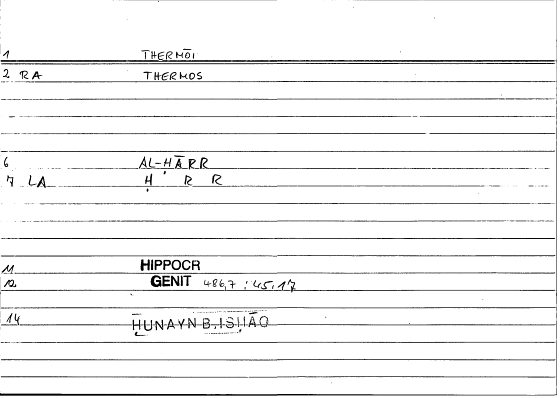 1 THERMŌI
2 RA THERMOS
6 AL-ḤĀRR
7 LA Ḥ R R
11 HIPPOCR
12 GENIT 486,7 : 45,17
14 ḤUNAYN B. ISḤĀQ